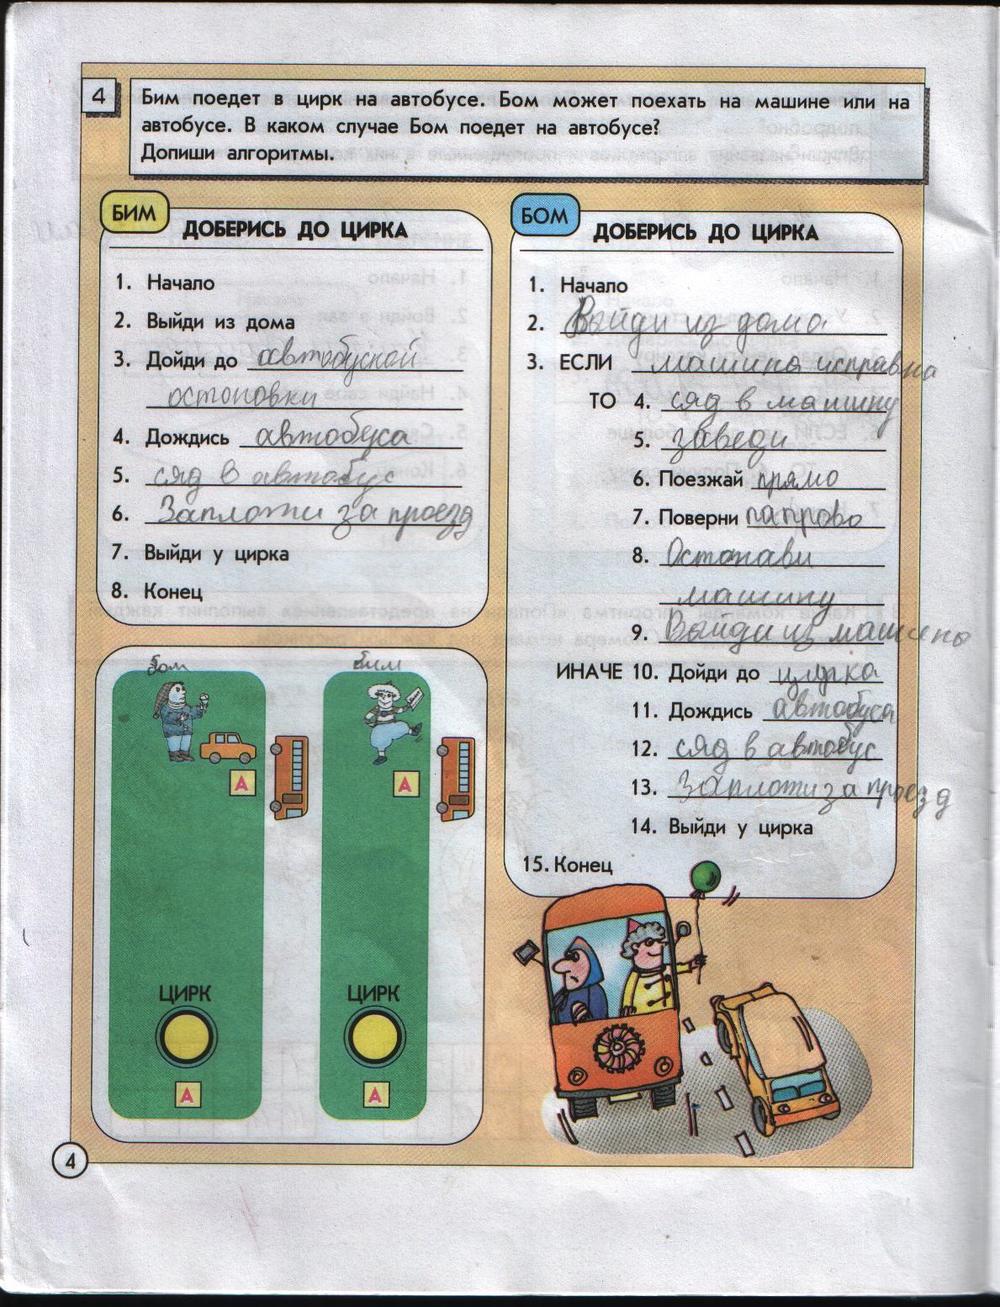 4
Бим поедет в цирк на автобусе. Бом может поехать на машине или на
автобусе. В каком случае Бом поедет на автобусе?
Допиши алгоритмы.
БИМ
ДОБЕРИСЬ ДО ЦИРКА
1. Начало
2. Выйди из дома
3. Дойди до автобусной
остоповки
4. Дождись автобуса
5. сяд в автобус
6. Заплоти за проезд
7. Выйди у цирка
8. Конец
БОМ
ДОБЕРИСЬ ДО ЦИРКА
1. Начало
2. Выйди из дома
3. ЕСЛИ машина исправна
ТО 4. сяд в машину
5. заведи
6. Поезжай прямо
7. Поверни папрово
8. Остонави
машину
9. Выйди из машены
ИНАЧЕ 10. Дойди до цырка
11. Дождись автобуса
12. сяд в автобус
13. Заплоти за проезд
14. Выйди у цирка
15. Конец
бом
бим
А
А
ЦИРК
ЦИРК
А
А
4